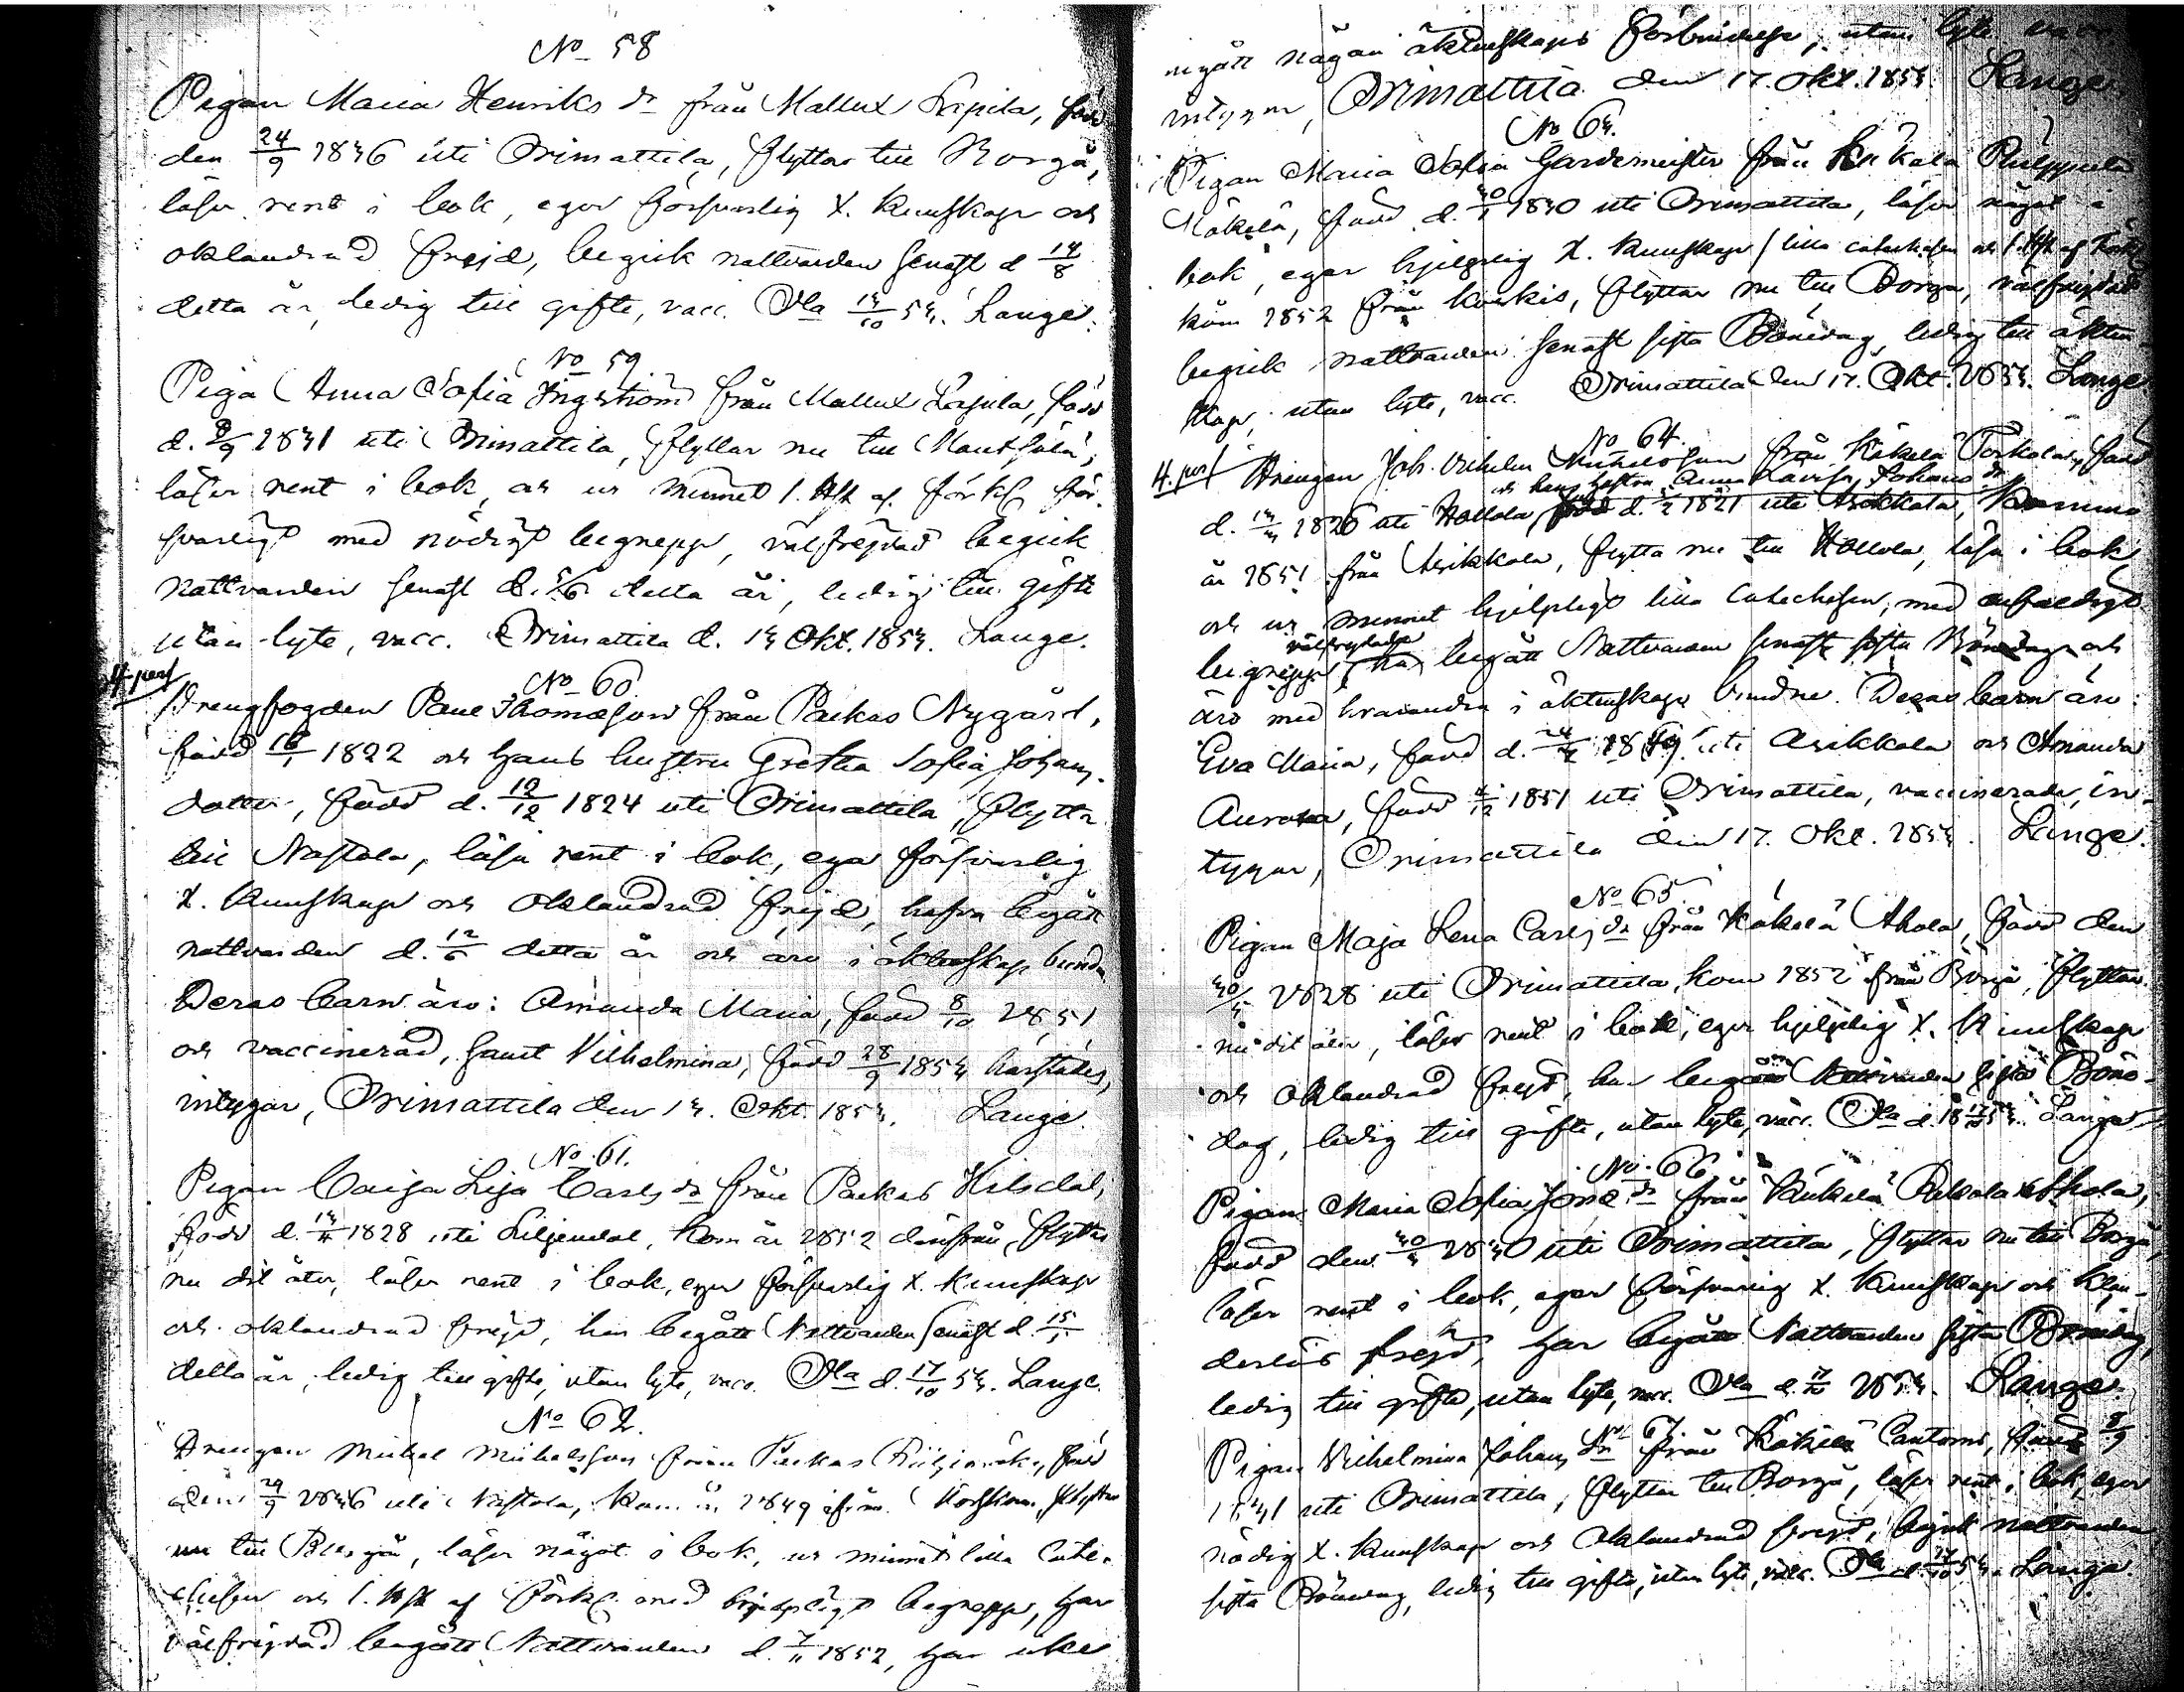 No 58
Pigan Maria Henriks dr från Mallux Seppila, född
den 24/9 1836 uti Orimattila, flyttar till Borgå,
läser rent i bok, eger försvarlig X. kunskap och
oklandrad frejd, begick nattvarden senast d 14/8
detta år, ledig till gifte, vacc. Ola 13/10 53. Lange.
No 59.
Piga Anna Sofia Ingström från Mallux, född
d. 8/9 1831 uti Orimattila, flyttar nu till
läser rent i bok, och ur minnet 1. Hft af förkl. för-
svarligt med nödigt begrepp, välfrejdad begick
nattvarden senast d. 5/6 detta år, ledig till gifte
utan lyte, vacc. Orimattila d. 13 Okt. 1853. Lange.
4. pers
No 60.
Drengfogden Paul Thomasson från Packas Nygård,
född 18/1 1822 och hans hustru Gretha Sofia Johans-
dotter, född d. 12/12 1824 uti Orimattila, flytta
till Nastola, läsa rent i bok, ega försvarlig
X. kunskap och oklandrad frejd, hafva begått
nattvarden d. 12/6 detta år och äro i äktenskap bundn
Deras barn äro: Amanda Maria, född 8/10 1851
och vaccinerad, samt Vilhelmina, född 28/9 1853 härstädes,
intygar, Orimattila den 13. Okt. 1853. Lange.
No 61.
Pigan Caisa Lisa Carls dr från Packas Hilsdal,
född d. 1828 uti Liljendal, kom år 1852 därifrån, flyttar
nu dit åter, läser rent i bok, eger försvarlig X. kunskap
och oklandrad frejd, har begått Nattvarden senast d. 15/1
detta år, ledig till gifte, utan lyte, vacc. Ola d. 17/10 53. Lange.
No 62.
Drengen Michel Michelsson från Packas född
den 29/9 1836 uti Nastola, kom år 1849 ifrån flyttar
nu till Borgå, läser något i bok, ur minnet lilla Cate-
chesen och 1. Hft af förkl. med hjelpligt begrepp, har
välfrejdad begått Nattvarden d. 7/11 1852, har icke
ingått någon äktenskaps förbindelse, utan lyte vacc
intygar, Orimattila den 17. Okt. 1853 Lange.
No 63.
Pigan Maria Sofia Gardemeister från
Mäkelä, född d. 30/ 1830 uti Orimattila, läser något i
bok, eger hjelplig X. kunskap / lilla catechesen och 1. Hft af
kom 1852 från flyttar nu till Borgå, välfrejdad
begick nattvarden senast sista Bönedag, ledig till äkten-
skap, utan lyte, vacc. Orimattila den 17. Okt. 1853. Lange.
No 64.
4. pers Drengen Joh. Vilhelm Michelsson från Käkelä Torkola, född
och hans hustru Anna Lovisa Johans dr
d. 1826 uti Hollola, född d. 1821 uti Asikkala, komna
år 1851 från Asikkala, flytta nu till Hollola, läsa i bok
och ur minnet hjelpligt lilla Catechesen, med enfaldigt
välfrejdade
begrepp, ha begått Nattvarden senast sista Bönedag och
äro med hvarandra i äktenskap bundne. Deras barn äro:
Eva Maria, född d. 1849 uti Asikkala och Amanda
Aurora, född 1851 uti Orimattila, vaccinerade, in-
tygar, Orimattila den 17. Okt. 1853. Lange.
No 65.
Pigan Maja Lena Carls dr från Käkelä Ahola, född den
30/ 1828 uti Orimattila, kom 1852 från Borgå, flyttar
nu dit åter, läser rent i bok, eger hjelplig X. kunskap
och oklandrad frejd, har begått Nattvarden sista Böne-
dag, ledig till gifte, utan lyte, vacc. Ola d. 18 53. Lange
No 66
Pigan Maria Sofia Jons dr från Käkelä Ahola,
född den 30/ 1830 uti Orimattila, flyttar nu till Borgå,
läser rent i bok, eger försvarlig X. kunskap och klan-
derlös frejd, har begått Nattvarden sista Bönedag,
ledig till gifte, utan lyte, vacc. Ola d. 1853. Lange.
No 67
Pigan Vilhelmina Johans dr från Käkelä Cantors, född 8/9
1831 uti Orimattila, flyttar till Borgå, läser rent i bok, eger
nödig X. kunskap och oklandrad frejd, begick nattvarden
sista Bönedag, ledig till gifte, utan lyte, vacc. Ola d. 17/10 53. Lange.